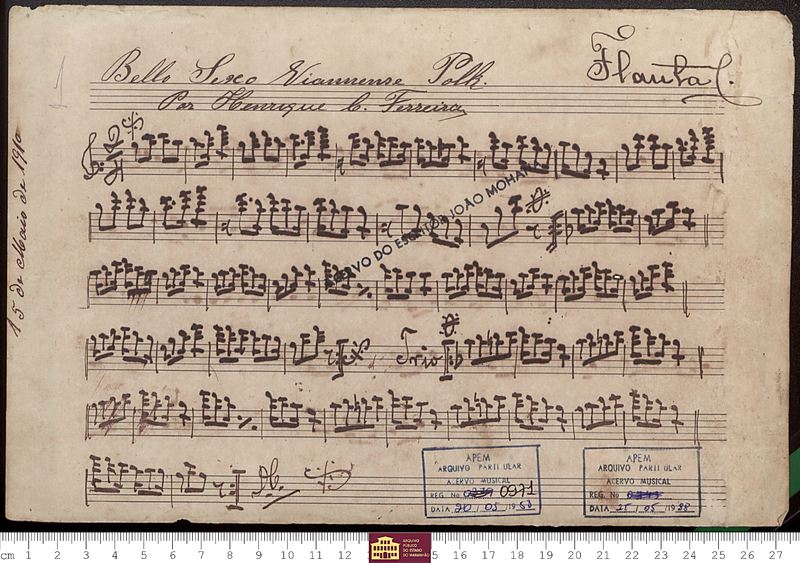 Bello Sexo Viannense Polk.
Flauta
Por Henrique C. Ferreira
15 de Maio de 1910
ACERVO DO ESCRITOR JOÃO MOHANA
Trio
D.C.
APEM
ARQUIVO PARTICULAR
ACERVO MUSICAL
REG. No 0971
DATA 20 / 05 / 1988
APEM
ARQUIVO PARTICULAR
ACERVO MUSICAL
REG. No
DATA 25 / 05 / 1988
cm 1 2 3 4 5 6 7 8 9 10 11 12 15 16 17 18 19 20 21 22 23 24 25 26 27
ARQUIVO
PÚBLICO
DO ESTADO
DO MARANHÃO